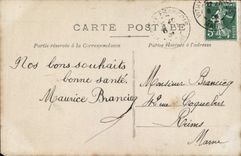 CARTE POSTALE
Partie réservée à la Correspondance
Partie réservée à l'adresse
Nos bons souhaits
bonne santé
Maurice Brancicq
Monsieur Brancicq
rue Coquebert
Reims
Marne